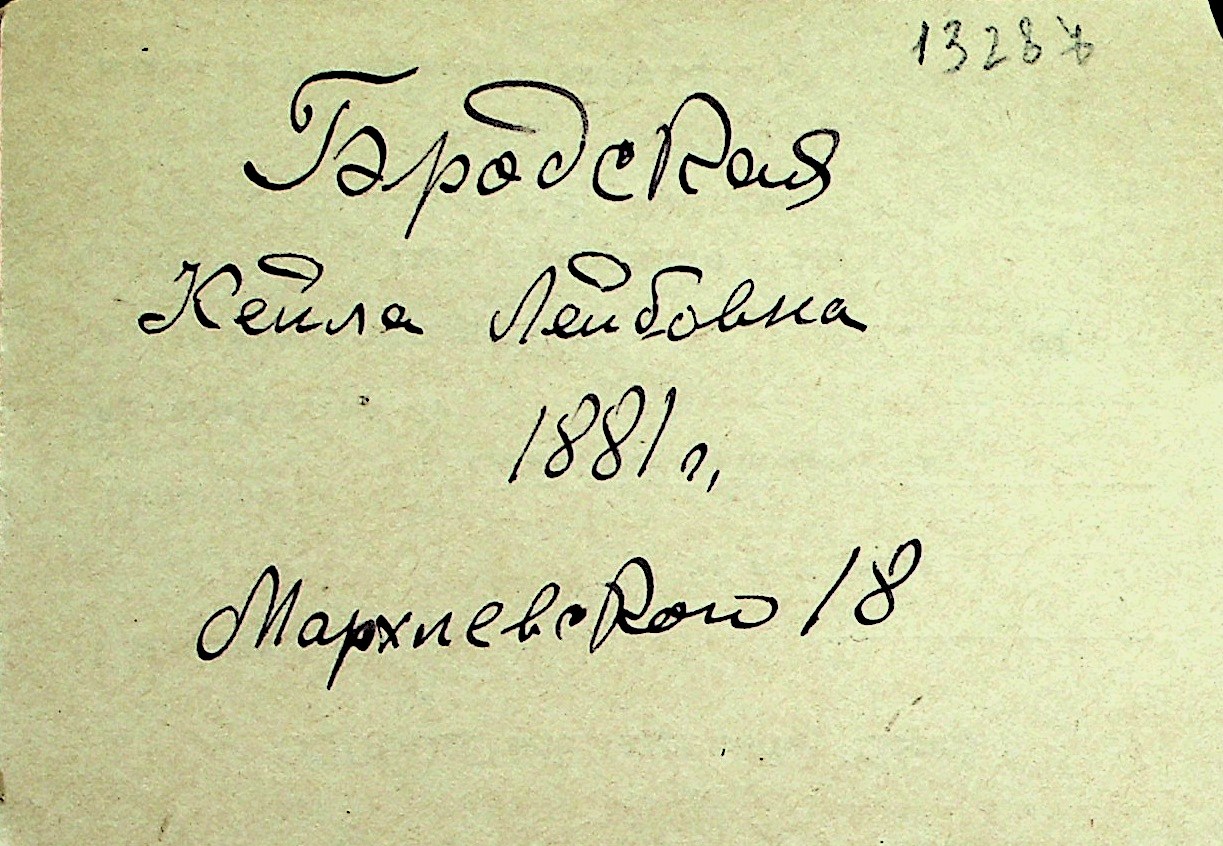 Бродская
Кейла Лейбовна
1881 г,
Мархлевского 18